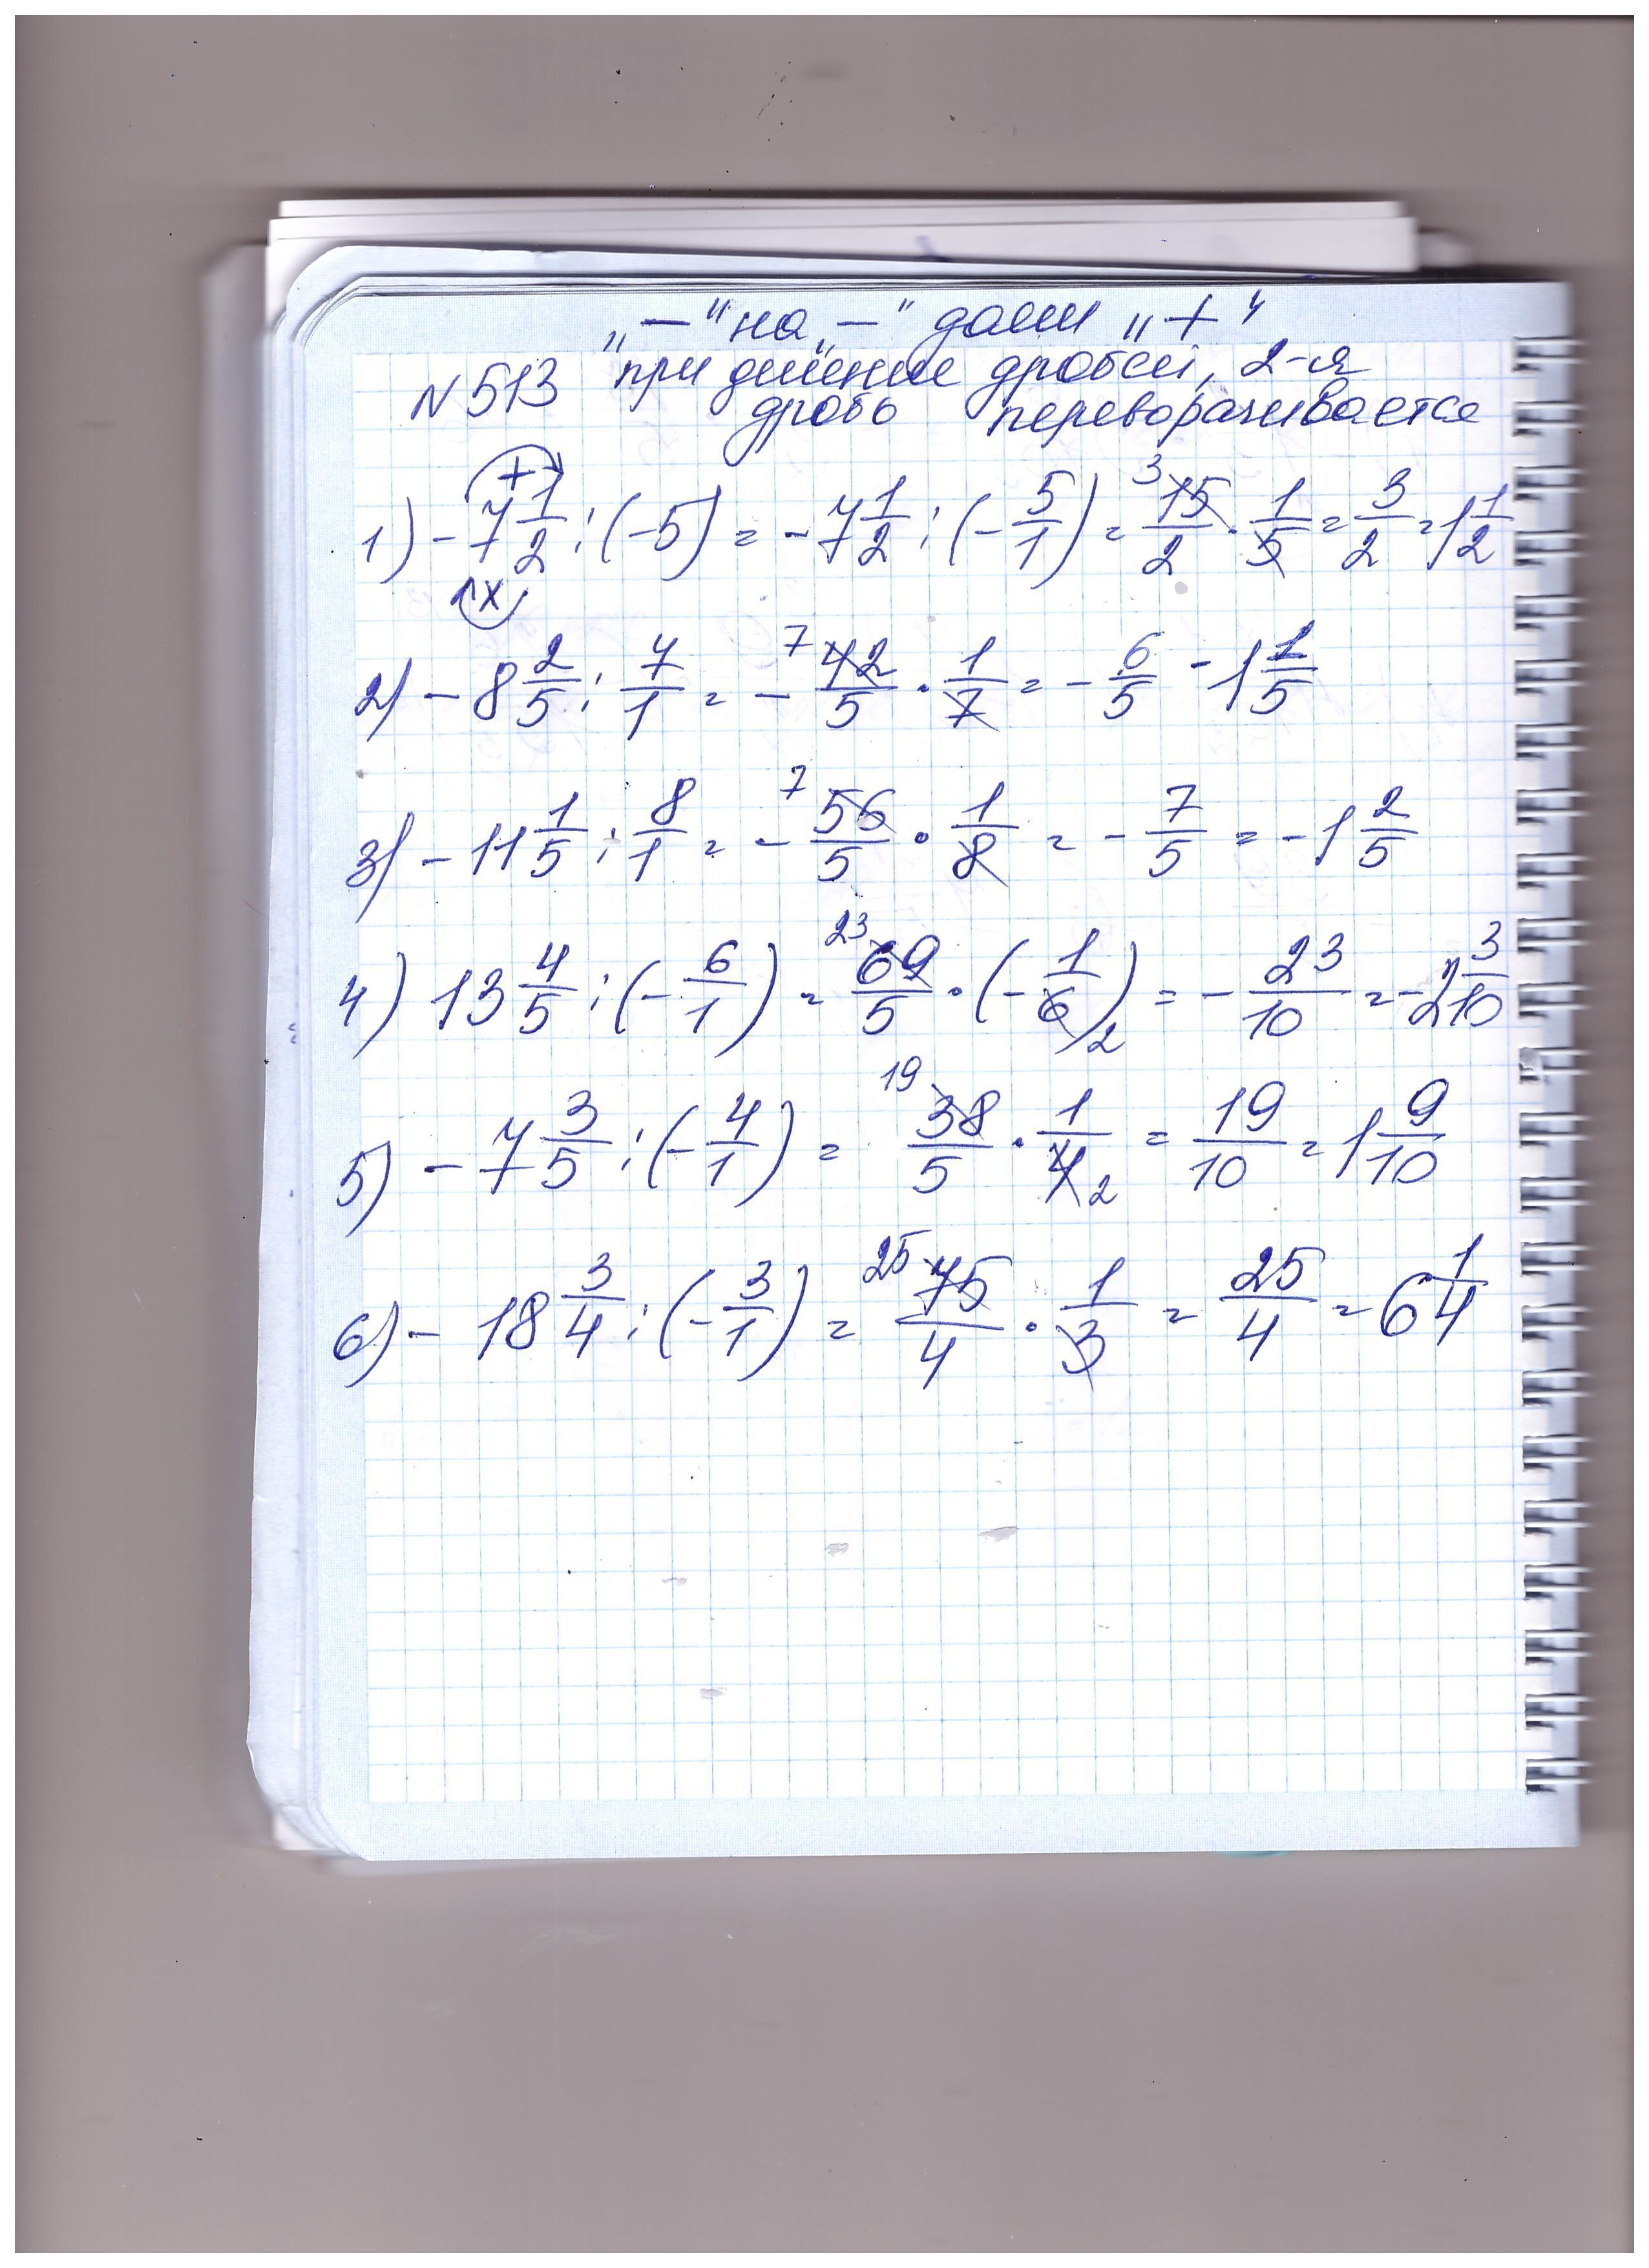 „—" на „—" даёт „+"
№513 при деление дробей, 2-я
дробь переворачивается
1) -7 1/2 : (-5) = -7 1/2 : (- 5/1) = 3 15/2 · 1/5 = 3/2 = 1 1/2
+
x
2) -8 2/5 : 7/1 = - 7 42/5 · 1/7 = - 6/5 - 1 1/5
3) -11 1/5 : 8/1 = - 7 56/5 · 1/8 = - 7/5 = -1 2/5
4) 13 4/5 : (- 6/1) = 23 69/5 · (- 1/6 2) = - 23/10 = -2 3/10
5) -7 3/5 : (- 4/1) = 19 38/5 · 1/4 2 = 19/10 = 1 9/10
6) -18 3/4 : (- 3/1) = 25 75/4 · 1/3 = 25/4 = 6 1/4